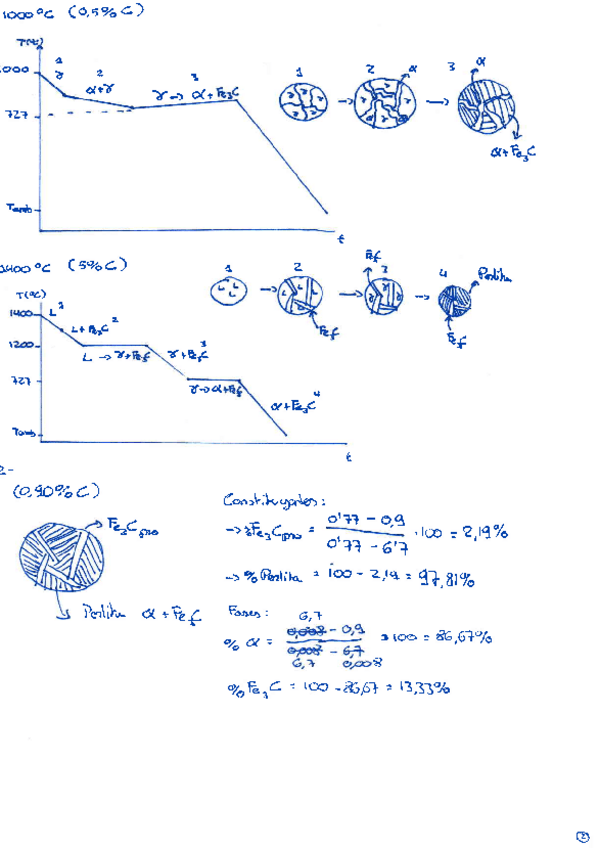 1000ºC (0,5% C)
T(ºC)
1000
1
γ
2
α+γ
3
γ → α + Fe3C
727
Tamb
t
1
2
α
3
α
γ
α+Fe3C
1400ºC (5% C)
T(ºC)
1400
L 1
L + Fe3C 2
1200
L → γ + Fe3C
γ + Fe3C 3
727
γ → α + Fe3C
α + Fe3C 4
Tamb
t
1
2
3
4
L
Fe3C
Fe3C
γ
Perlita
Fe3C
2-
(0,90% C)
Fe3C pro
Perlita α + Fe3C
Constituyentes:
→ % Fe3C pro = 0'77 - 0,9 / 0'77 - 6'7 · 100 = 2,19%
→ % Perlita = 100 - 2,19 = 97,81%
Fases:
6,7
% α = 0,008 - 0,9 / 0,008 - 6,7 · 100 = 86,67%
6,7 0,008
% Fe3C = 100 - 86,67 = 13,33%
2